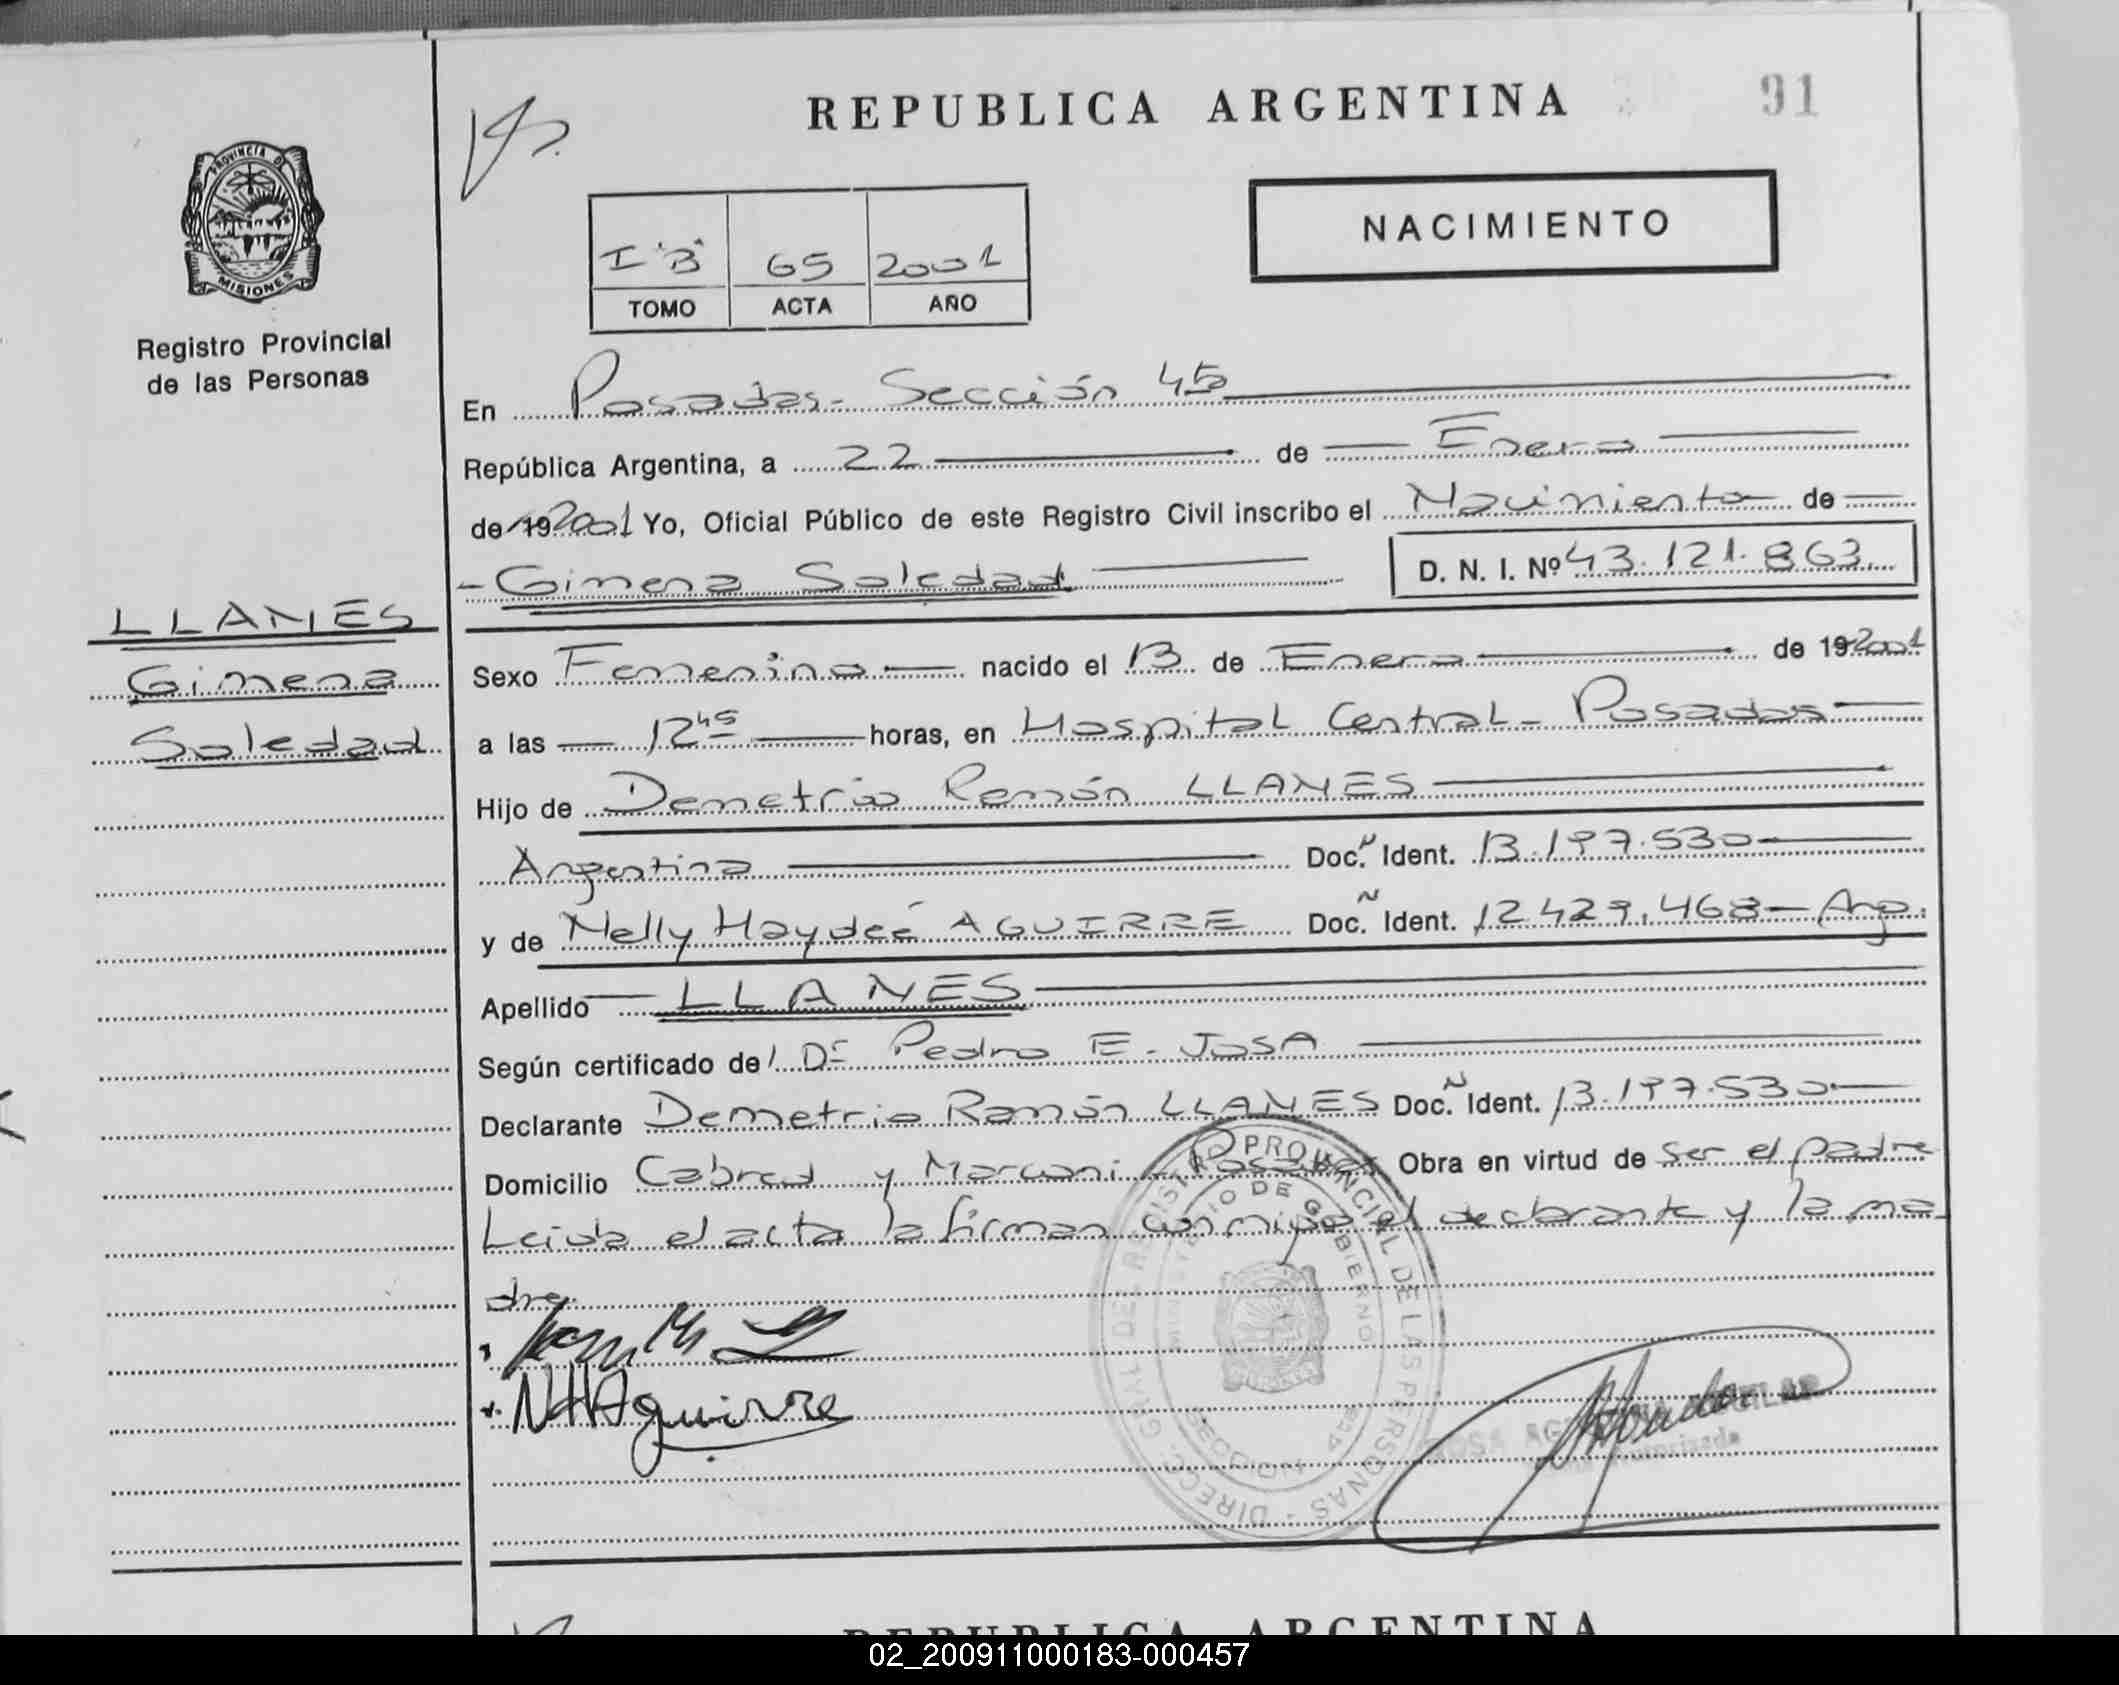 REPUBLICA ARGENTINA
91
PROVINCIA DE
MISIONES
Registro Provincial
de las Personas
NACIMIENTO
I "B" 65 2001
TOMO ACTA AÑO
En Posadas - Sección 4ta
República Argentina, a 22 de Enero
de 19 2001 Yo, Oficial Público de este Registro Civil inscribo el Nacimiento de
Gimena Soledad D. N. I. Nº 43.121.863
LLANES
Gimena
Soledad
Sexo Femenino nacido el 13 de Enero de 19 2001
a las 12 45 horas, en Hospital Central - Posadas
Hijo de Demetrio Ramón LLANES
Argentina Doc. Ident. 13.197.530
y de Nelly Haydeé AGUIRRE Doc. Ident. 12.429.468 - Arg.
Apellido LLANES
Según certificado de Dr Pedro E. JOSA
Declarante Demetrio Ramón LLANES Doc. Ident. 13.197.530
Domicilio Cabred y Marconi - Posadas Obra en virtud de ser el padre
Leida el acta la firman conmigo el declarante y la ma
dre.
NHAguirre
DIRECC. GRAL DEL REGISTRO PROVINCIAL DE LAS PERSONAS
MINISTERIO DE GOBIERNO
SECCION 4ta
REPUBLICA ARGENTINA
02_200911000183-000457